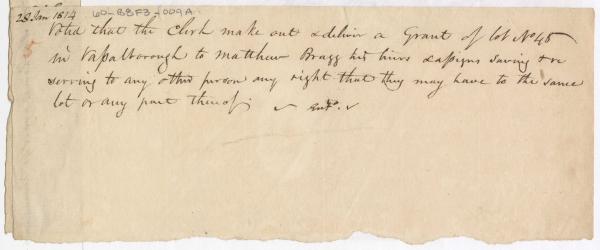 28 Jan 1814
60-B8F3-009A
Voted that the Clerk make out & deliver a Grant of lot No 45
in Vassalborough to Matthew Bragg his hiers & assigns saving & re
serving to any other person any right that they may have to the same
lot or any part thereof